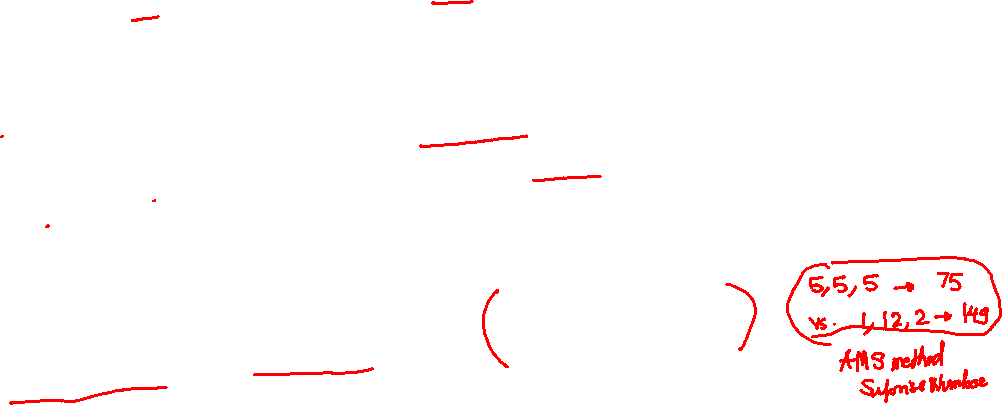 5, 5, 5 → 75
vs. 1, 12, 2 → 149
AMS method
Surprise Number